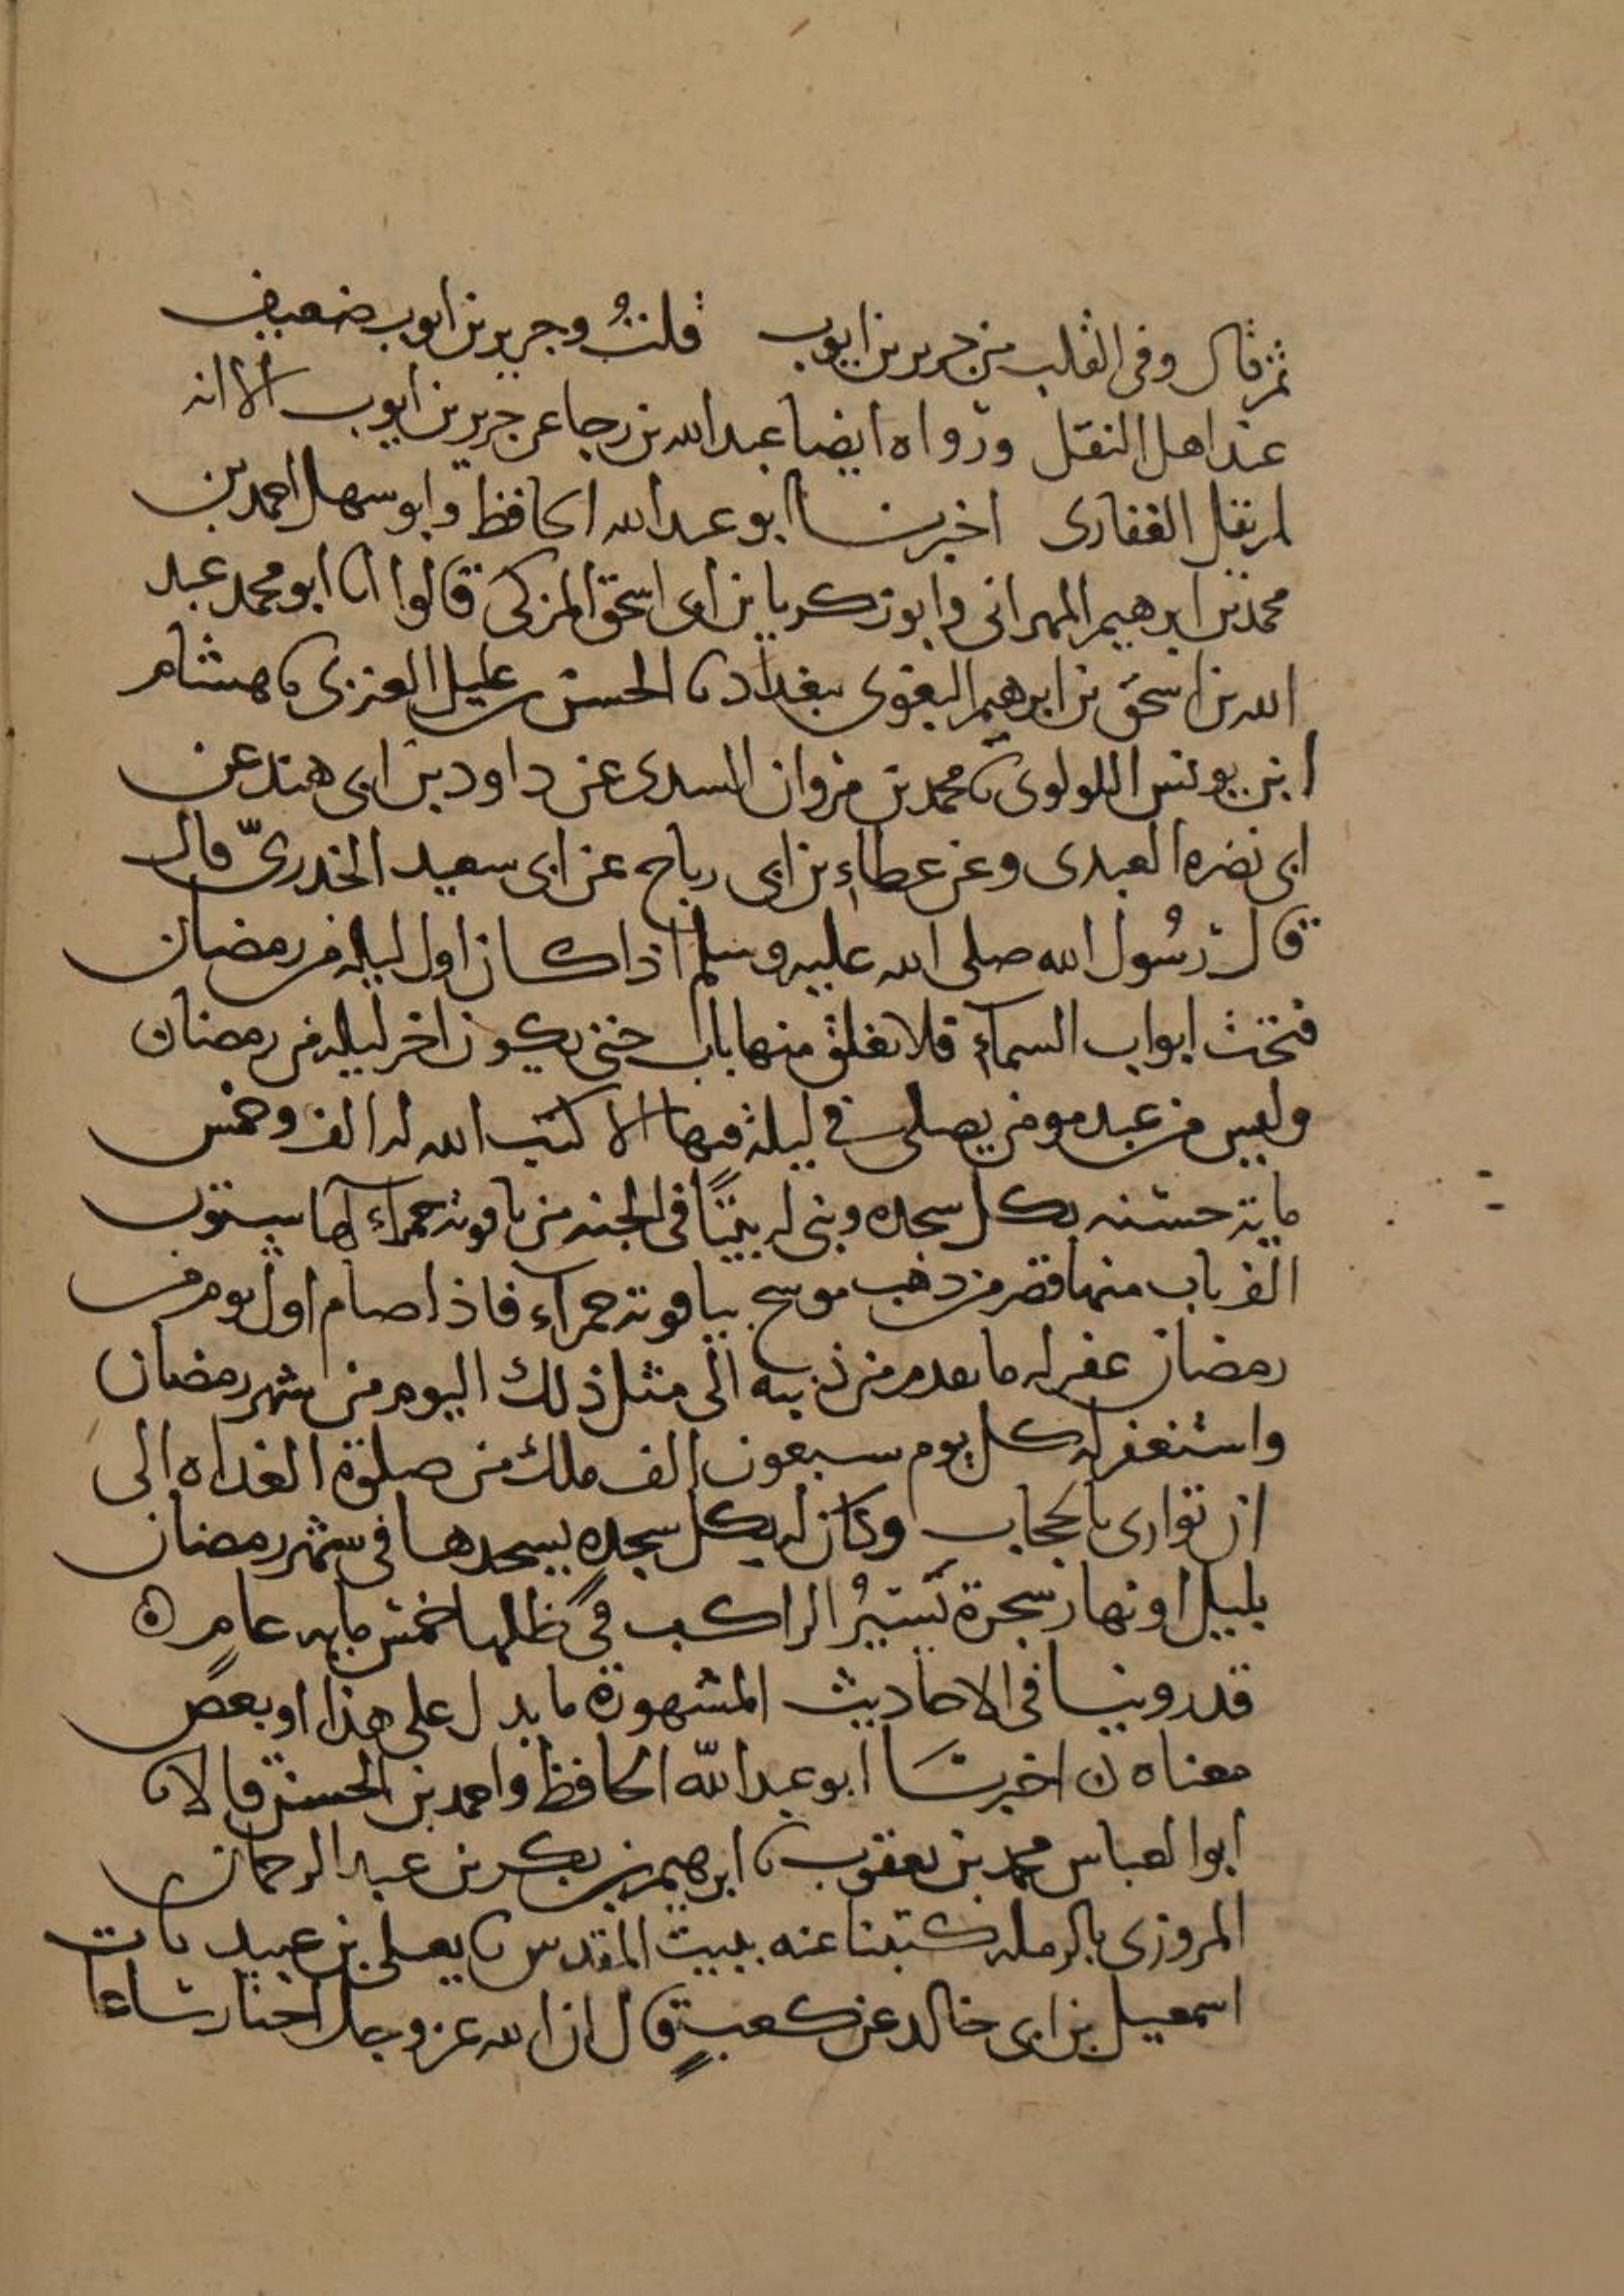 ثم قال وفي القلب من جرير بن ايوب قلتُ وجرير بن ايوب ضعيف
عند اهل النقل ورواه ايضا عبد الله بن رجا عن جرير بن ايوب الا انه
لم يقل الغفارى اخبرنا ابو عبد الله الحافظ وابو سهل احمد بن
محمد بن ابرهيم المهرانى وابو زكريا بن ابى اسحق المزكى قالوا انا ابو محمد عبد
الله بن اسحق بن ابرهيم البغوى ببغداد نا الحسن بن عليل العنزى نا هشام
ابن يونس اللولوى نا محمد بن مروان السدى عن داود بن ابى هند عن
ابى نضره العبدى وعن عطاء بن ابى رباح عن ابى سعيد الخدرىّ قال
قال رسُول الله صلى الله عليه وسلم اذا كان اول ليله من رمضان
فتحت ابواب السمآء فلا يغلق منها باب حتى يكون اخر ليله من رمضان
وليس من عبد مومن يصلى في ليلة فيها الا كتب الله له الف وخمس
ماية حسنه بكل سجده وبنى له بيتًا فى الجنه من ياقوته حمراء لها ستون
الف باب منها قصر من ذهب موشح بياقوته حمرآء فاذا صام اول يوم من
رمضان غفر له ما تقدم من ذنبه الى مثل ذلك اليوم من شهر رمضان
واستغفر له كل يوم سبعون الف ملك من صلوة الغداه الى
ان توارى بالحجاب وكان له بكل سجده يسجدها فى شهر رمضان
بليل او نهار شجرة يَسيرُ الراكب في ظلها خمس مايه عام ه
قد روينا فى الاحاديث المشهورة ما يدل على هذا او بعض
معناه ن اخبرنَا ابو عبد اللّه الحافظ واحمد بن الحسن قالا نا
ابو العباس محمد بن يعقوب نا ابرهيم بن بكر بن عبد الرحمان
المروزى بالرمله كتبنا عنه ببيت المقدس نا يعلى بن عبيد نا
اسمعيل بن ابى خالد عن كعبٍ قال ان الله عز وجل اختار ساعات